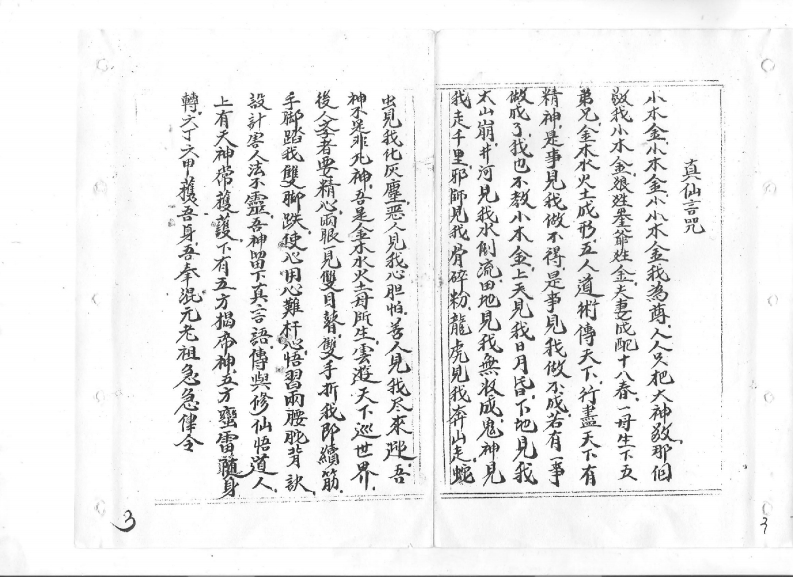 真仙言咒
小木金小木金小小木金我為尊人人只把大神敬那個
敬我小木金娘姓墨爺姓金夫妻成配十八春一母生下五
弟兄金木水火土成形五人道術傳天下行盡天下有
精神是事見我做不得是事見我做不成若有一事
做成了我也不教小木金上天見我日月昏下地見我
太山崩井河見我水倒流田地見我無收成鬼神見
我走千里邪師見我骨碎粉龍虎見我奔山走蛇
虫見我化灰塵惡人見我心胆怕善人見我尽來迎吾
神不是非凡神吾是金木水火土母所生雲遊天下巡世界
後人學者要精心兩眼一見雙目瞽雙手折我即續筋
手脚踏我雙脚跌使心因心難杆心悟習兩腰駝背訣
設計害人法不靈吾神留下真言語傳與修仙悟道人
上有天神常獲護下有五方揭帝神五方蠻雷隨身
轉六丁六甲護吾身吾奉混元老祖急急律令
3
3